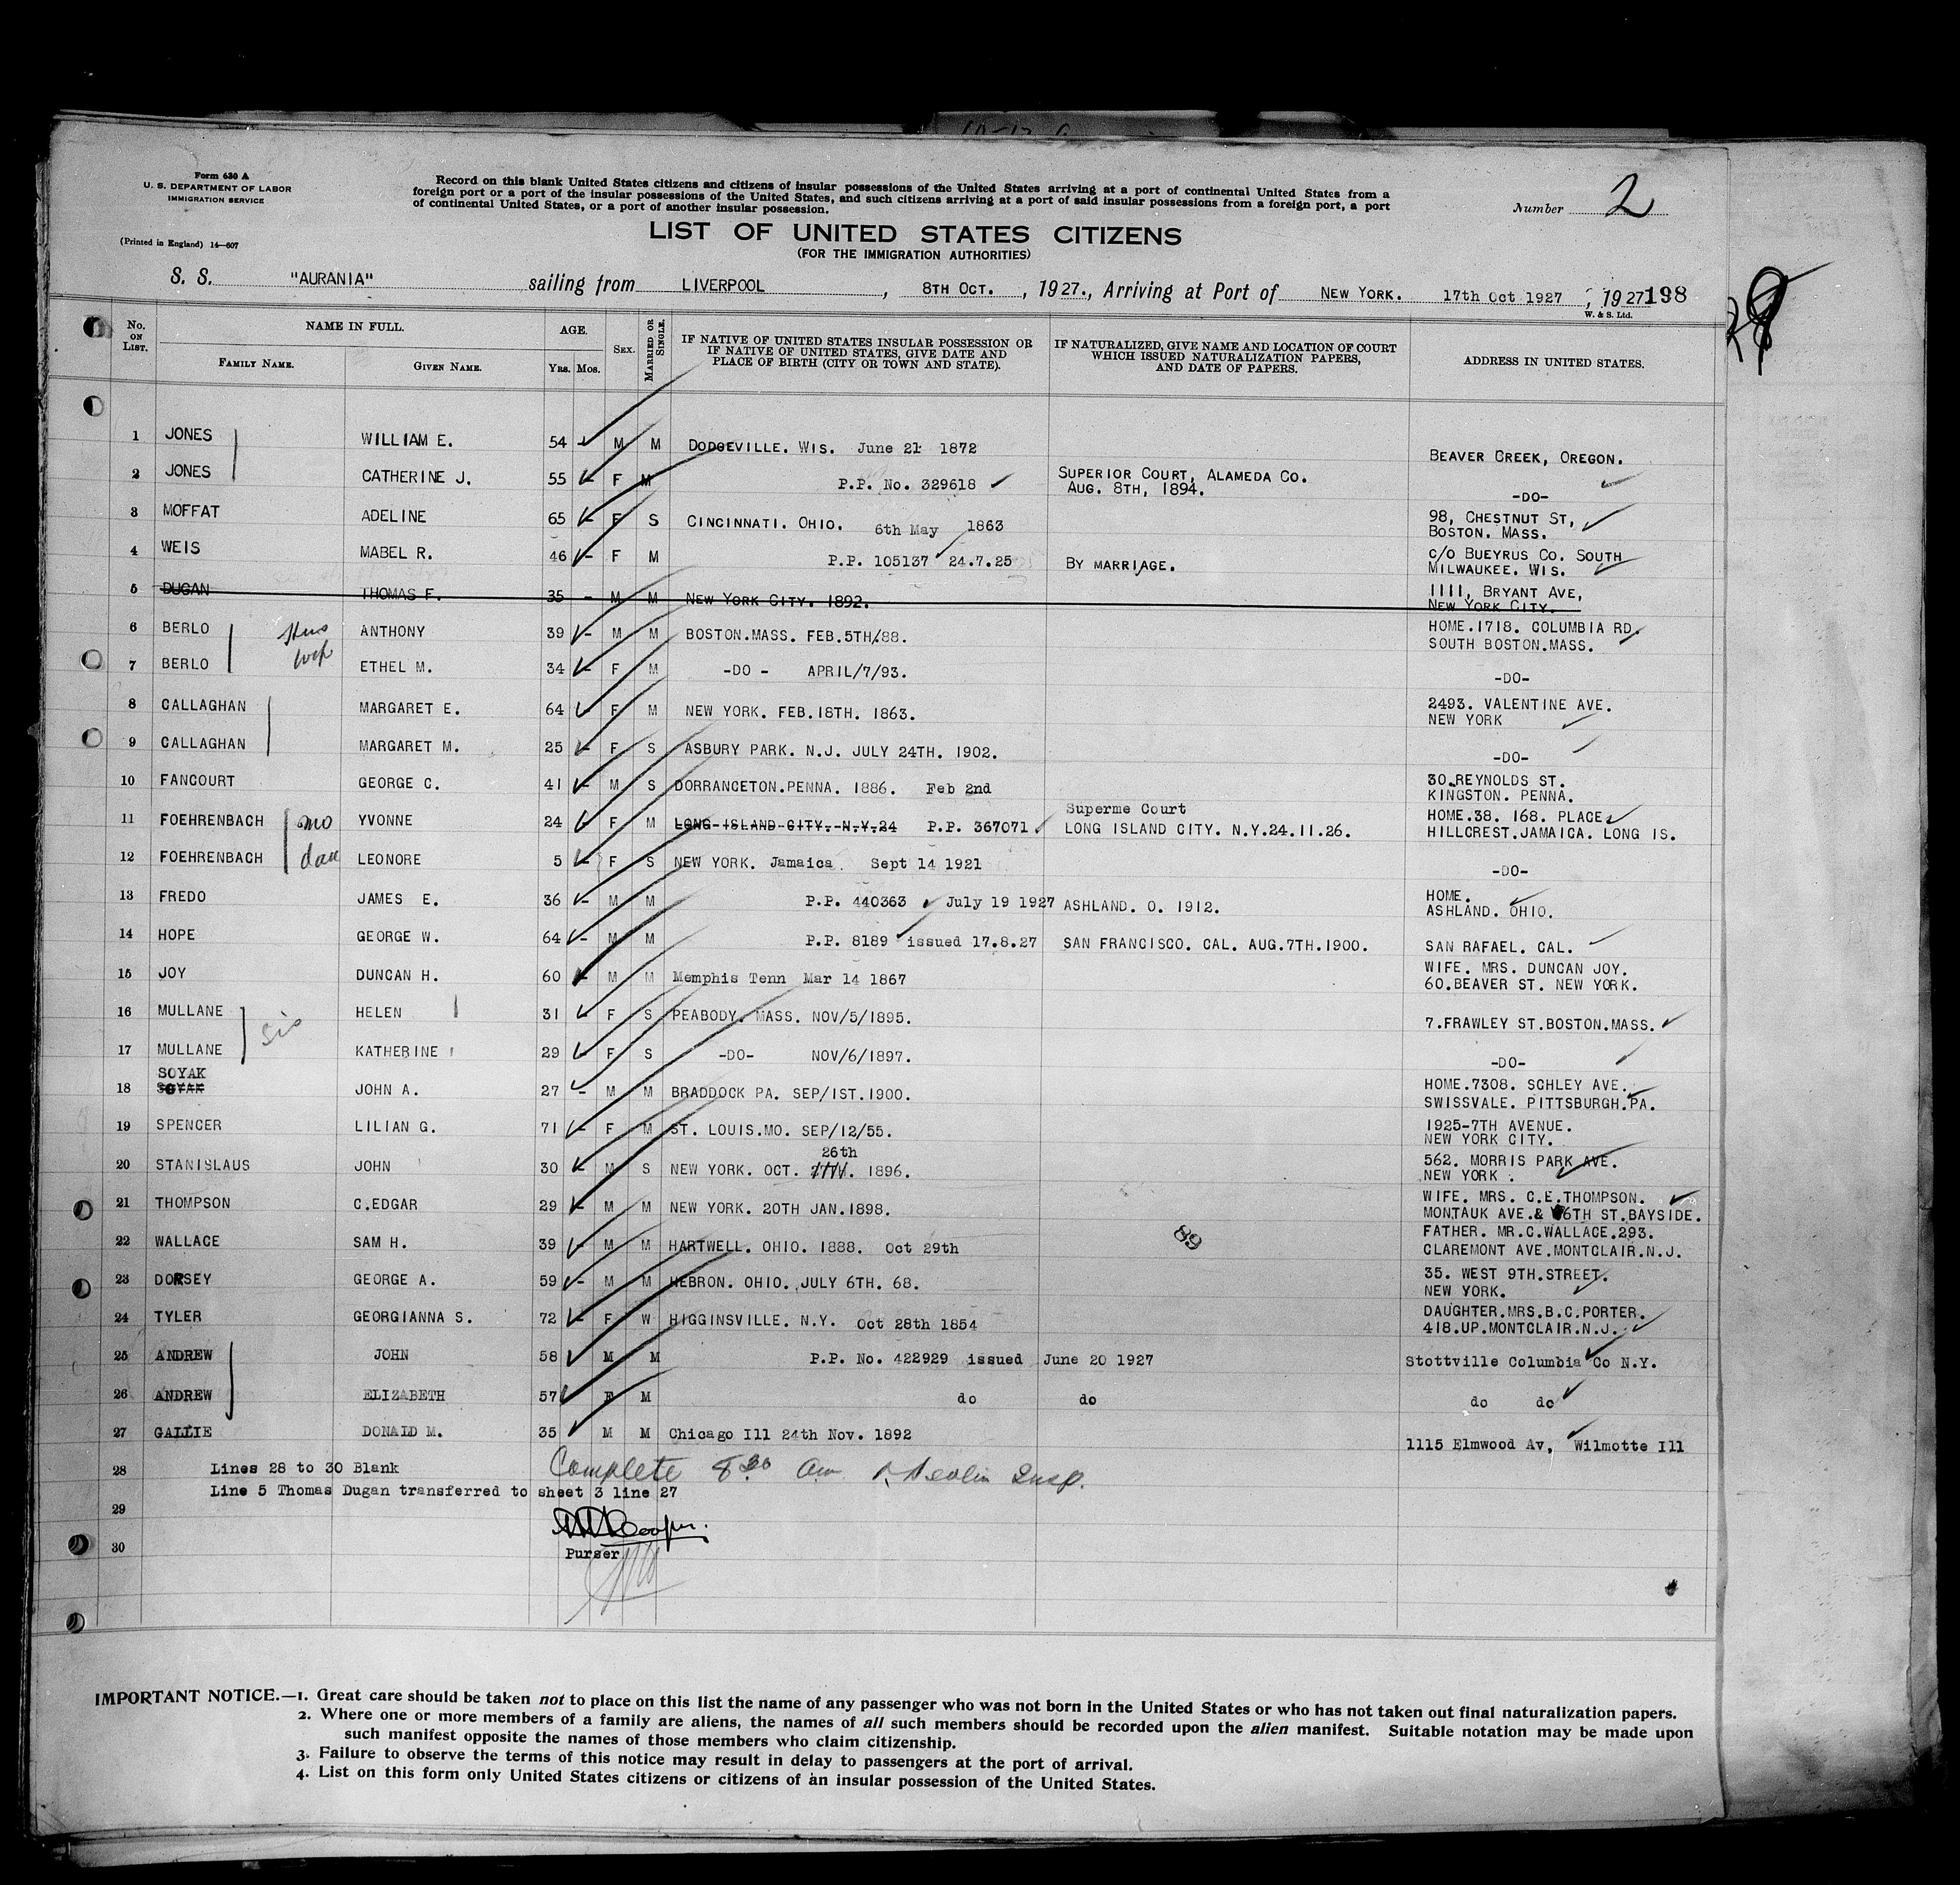 Form 630 A
U. S. DEPARTMENT OF LABOR
IMMIGRATION SERVICE
(Printed in England) 14—607
Record on this blank United States citizens and citizens of insular possessions of the United States arriving at a port of continental United States from a
foreign port or a port of the insular possessions of the United States, and such citizens arriving at a port of said insular possessions from a foreign port, a port
of continental United States, or a port of another insular possession.
Number 2
LIST OF UNITED STATES CITIZENS
(FOR THE IMMIGRATION AUTHORITIES)
S. S. "AURANIA" sailing from LIVERPOOL, 8TH OCT., 1927., Arriving at Port of NEW YORK. 17th Oct 1927, 1927 198
W. & S. Ltd.
No. ON LIST. NAME IN FULL. FAMILY NAME. GIVEN NAME. AGE. Yrs. Mos. SEX. MARRIED OR SINGLE. IF NATIVE OF UNITED STATES INSULAR POSSESSION OR IF NATIVE OF UNITED STATES, GIVE DATE AND PLACE OF BIRTH (CITY OR TOWN AND STATE). IF NATURALIZED, GIVE NAME AND LOCATION OF COURT WHICH ISSUED NATURALIZATION PAPERS, AND DATE OF PAPERS. ADDRESS IN UNITED STATES.
1 JONES WILLIAM E. 54 - M M DODGEVILLE. WIS. June 21 1872 BEAVER CREEK, OREGON.
2 JONES CATHERINE J. 55 - F M P.P. No. 329618 SUPERIOR COURT, ALAMEDA CO. AUG. 8TH, 1894. -DO-
3 MOFFAT ADELINE 65 - F S CINCINNATI. OHIO. 6th May 1863 98, CHESTNUT ST, BOSTON. MASS.
4 WEIS MABEL R. 46 - F M P.P. 105137 24.7.25 BY MARRIAGE. C/O BUEYRUS CO. SOUTH MILWAUKEE. WIS.
5 DUGAN THOMAS F. 35 - M M NEW YORK CITY. 1892. 1111, BRYANT AVE, NEW YORK CITY.
6 BERLO ANTHONY 39 - M M BOSTON.MASS. FEB.5TH/88. HOME.1718. COLUMBIA RD. SOUTH BOSTON.MASS.
7 BERLO ETHEL M. 34 - F M -DO- APRIL/7/93. -DO-
8 CALLAGHAN MARGARET E. 64 - F M NEW YORK. FEB.18TH. 1863. 2493. VALENTINE AVE. NEW YORK
9 CALLAGHAN MARGARET M. 25 - F S ASBURY PARK. N.J. JULY 24TH. 1902. -DO-
10 FANCOURT GEORGE C. 41 - M S DORRANCETON.PENNA. 1886. Feb 2nd 30.REYNOLDS ST. KINGSTON. PENNA.
11 FOEHRENBACH mo YVONNE 24 - F M LONG ISLAND CITY. N.Y.24 P.P. 367071 Superme Court LONG ISLAND CITY. N.Y.24.11.26. HOME.38. 168. PLACE. HILLCREST.JAMAICA. LONG IS.
12 FOEHRENBACH dau LEONORE 5 - F S NEW YORK. Jamaica Sept 14 1921 -DO-
13 FREDO JAMES E. 36 - M M P.P. 440363 July 19 1927 ASHLAND. O. 1912. HOME. ASHLAND. OHIO.
14 HOPE GEORGE W. 64 - M M P.P. 8189 issued 17.8.27 SAN FRANCISCO. CAL. AUG.7TH.1900. SAN RAFAEL. CAL.
15 JOY DUNCAN H. 60 - M M Memphis Tenn Mar 14 1867 WIFE. MRS. DUNCAN JOY. 60.BEAVER ST. NEW YORK.
16 MULLANE HELEN 31 - F S PEABODY. MASS. NOV/5/1895. 7.FRAWLEY ST.BOSTON.MASS.
sis
17 MULLANE KATHERINE 29 - F S -DO- NOV/6/1897. -DO-
SOYAK
18 JOHN A. 27 - M M BRADDOCK PA. SEP/1ST.1900. HOME.7308. SCHLEY AVE. SWISSVALE. PITTSBURGH.PA.
19 SPENCER LILIAN G. 71 - F M ST. LOUIS.MO. SEP/12/55. 1925-7TH AVENUE. NEW YORK CITY.
20 STANISLAUS JOHN 30 - M S NEW YORK. OCT. 26th 1896. 562. MORRIS PARK AVE. NEW YORK.
21 THOMPSON C.EDGAR 29 - M M NEW YORK. 20TH JAN.1898. WIFE. MRS. C.E.THOMPSON. MONTAUK AVE.& 6TH ST.BAYSIDE.
22 WALLACE SAM H. 39 - M M HARTWELL. OHIO. 1888. Oct 29th 89 FATHER. MR.C.WALLACE.293. CLAREMONT AVE.MONTCLAIR.N.J.
23 DORSEY GEORGE A. 59 - M M HEBRON. OHIO. JULY 6TH. 68. 35. WEST 9TH.STREET. NEW YORK.
24 TYLER GEORGIANNA S. 72 - F W HIGGINSVILLE. N.Y. Oct 28th 1854 DAUGHTER.MRS.B.C.PORTER. 418.UP.MONTCLAIR.N.J.
25 ANDREW JOHN 58 M M P.P. No. 422929 issued June 20 1927 Stottville Columbia Co N.Y.
26 ANDREW ELIZABETH 57 F M do do do do
27 GALLIE DONALD M. 35 M M Chicago Ill 24th Nov. 1892 1115 Elmwood Av, Wilmotte Ill
28 Lines 28 to 30 Blank Complete 8.30 am Insp.
Line 5 Thomas Dugan transferred to sheet 3 line 27
29 Cooper.
30 Purser
IMPORTANT NOTICE.—1. Great care should be taken not to place on this list the name of any passenger who was not born in the United States or who has not taken out final naturalization papers.
2. Where one or more members of a family are aliens, the names of all such members should be recorded upon the alien manifest. Suitable notation may be made upon
such manifest opposite the names of those members who claim citizenship.
3. Failure to observe the terms of this notice may result in delay to passengers at the port of arrival.
4. List on this form only United States citizens or citizens of an insular possession of the United States.